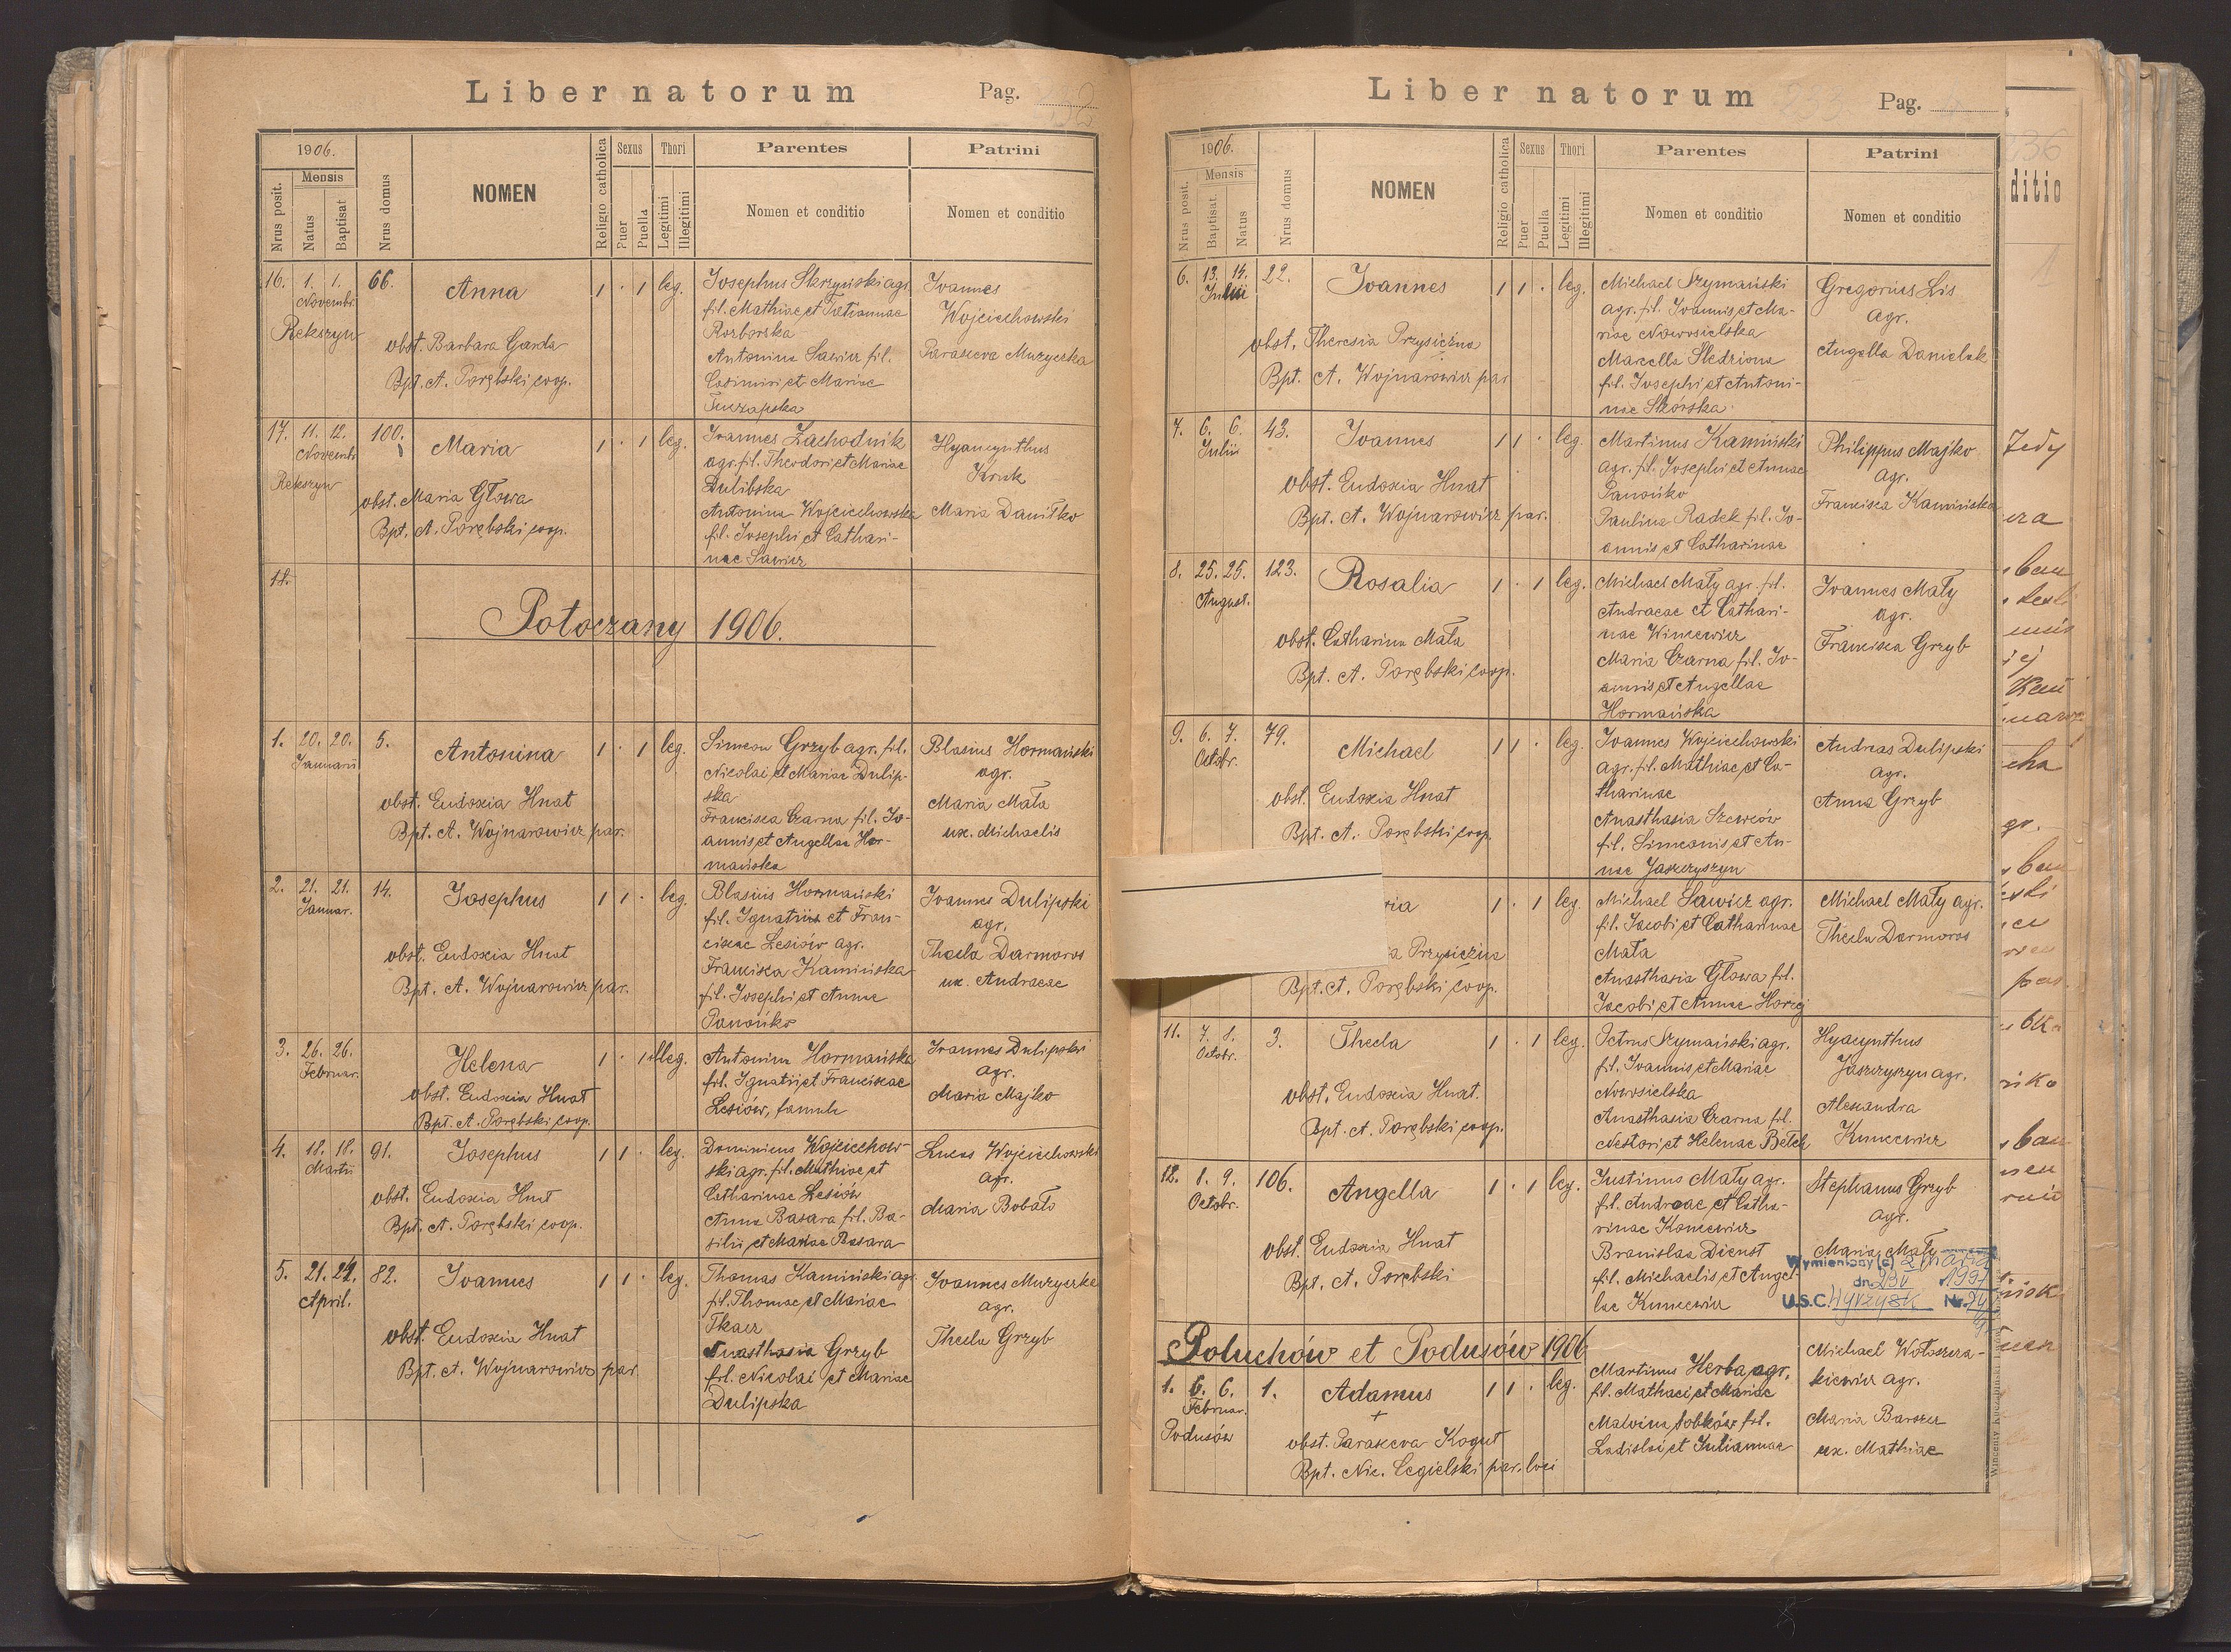 Liber natorum Pag.
1906.
Mensis
Nrus posit.
Natus
Baptisat
Nrus domus
NOMEN
Religio catholica
Sexus
Puer
Puella
Thori
Legitimi
Illegitimi
Parentes
Nomen et conditio
Patrini
Nomen et conditio
16. 1. 1. 66. Anna 1 · 1 leg.
Novembr.
Rekszyn
obst. Barbara Garda
Bpt. A. Porębski coop.
Josephus Skrzyński agr.
fil. Mathiae et Tatiannae
Rozborska
Antonina Sawicz fil.
Casimiri et Mariae
Tuczapska
Joannes
Wojciechowski
Parasceva Muzyczka
17. 11. 12. 100. Maria 1 · 1 leg.
Novembr.
Rekszyn
obst. Maria Głowa
Bpt. A. Porębski coop.
Joannes Zachodnik
agr. fil. Theodori et Mariae
Dulibska
Antonina Wojciechowska
fil. Josephi et Cathari-
nae Sawicz
Hyacynthus
Kruk
Maria Daniłko
18.
Potoczany 1906.
1. 20. 20. 5. Antonina 1 · 1 leg.
Januarii
obst. Eudoxia Hnat
Bpt. A. Wojnarowicz par.
Simeon Grzyb agr. fil.
Nicolai et Mariae Dulip-
ska
Francisca Czarna fil. Jo-
annis et Angellae Hor-
mańska
Blasius Hormański
agr.
Maria Mała
ux. Michaelis
2. 21. 21. 14. Josephus 1 1 · leg.
Januar.
obst. Eudoxia Hnat
Bpt. A. Wojnarowicz par.
Blasius Hormański
fil. Ignatius et Fran-
ciscae Lesiów agr.
Francisca Kamińska
fil. Josephi et Annae
Panońko
Joannes Dulipski
agr.
Thecla Darmoros
ux. Andraeae
3. 26. 26. Helena 1 · 1 illeg.
Februar.
obst. Eudoxia Hnat
Bpt. A. Porębski coop.
Antonina Hormańska
fil. Ignatii et Franciscae
Lesiów, famula
Joannes Dulipski
agr.
Maria Majko
4. 18. 18. 91. Josephus 1 1 · leg.
Martii
obst. Eudoxia Hnat
Bpt. A. Porębski coop.
Dominicus Wojciechow-
ski agr. fil. Mathiae et
Catharinae Lesiów
Anna Basara fil. Ba-
silii et Mariae Basara
Lucas Wojciechowski
agr.
Maria Bobało
5. 21. 24. 82. Joannes 1 1 · leg.
April.
obst. Eudoxia Hnat
Bpt. A. Wojnarowicz par.
Thomas Kamiński agr.
fil. Thomae et Mariae
Tkacz
Anasthasia Grzyb
fil. Nicolai et Mariae
Dulipska
Joannes Muzyczka
agr.
Thecla Grzyb
Liber natorum Pag.
1906.
Mensis
Nrus posit.
Baptisat.
Natus
Nrus domus
NOMEN
Religio catholica
Sexus
Puer
Puella
Thori
Legitimi
Illegitimi
Parentes
Nomen et conditio
Patrini
Nomen et conditio
6. 13. 14. 22. Joannes 1 1 · leg.
Julii
obst. Theresia Przysiczna
Bpt. A. Wojnarowicz par
Michael Szymański
agr. fil. Joannis et Ma-
riae Nowosielska
Marcella Śledziona
fil. Josephi et Antoni-
nae Skórska
Gregorius Lis
agr.
Angella Danielak
7. 6. 6. 43. Joannes 1 1 · leg.
Julii
obst. Eudoxia Hnat
Bpt. A. Wojnarowicz par.
Martinus Kamiński
agr. fil. Josephi et Annae
Panońko
Paulina Radek fil. Jo-
annis et Catharinae
Philippus Majko
agr.
Francisca Kamińska
8. 25. 25. 123. Rosalia 1 · 1 leg.
August.
obst. Catharina Mała
Bpt. A. Porębski coop.
Michael Mały agr. fil.
Andraeae et Cathari-
nae Wincewicz
Maria Czarna fil. Jo-
annis et Angellae
Hormańska
Joannes Mały
agr.
Francisca Grzyb
9. 6. 7. 79. Michael 1 1 · leg.
Octobr.
obst. Eudoxia Hnat
Bpt. A. Porębski coop.
Joannes Wojciechowski
agr. fil. Mathiae et Ca-
tharinae
Anasthasia Szewców
fil. Simeonis et An-
nae Jaszczyszyn
Andreas Dulipski
agr.
Anna Grzyb
ria 1 · 1 leg.
a Przysiczna
Bpt. A. Porębski coop.
Michael Sawicz agr.
fil. Jacobi et Catharinae
Mała
Anasthasia Głowa fil.
Jacobi et Annae Horzej
Michael Mały agr.
Thecla Darmoros
11. 7. 8. 3. Thecla 1 · 1 leg.
Octobr.
obst. Eudoxia Hnat.
Bpt. A. Porębski coop.
Petrus Szymański agr.
fil. Joannis et Mariae
Nowosielska
Anasthasia Czarna fil.
Nestori et Helenae Betch
Hyacynthus
Jaszczyszyn agr.
Alexandra
Kuncewicz
12. 1. 9. 106. Angella 1 · 1 leg.
Octobr.
obst. Eudoxia Hnat
Bpt. A. Porębski
Justinus Mały agr.
fil. Andraeae et Catha-
rinae Koncewicz
Branislaa Dienst
fil. Michaelis et Angel-
lae Kuncewicz
Stephanus Grzyb
agr.
Maria Mały
Wymieniony (a) zmarł
dn. 1991
U.S.C. Wyrzysk Nr.
Poluchów et Podusów 1906
1. 6. 6. 1. Adamus 1 1 · leg.
Februar.
Podusów
obst. Parasceva Kogut
Bpt. Nic. Cegielski par. loci
Martinus Herba agr.
fil. Mathaei et Mariae
Malvina Sobków fil.
Ladislai et Julianae
Michael Wołoszcza-
kiewicz agr.
Maria Barszcz
ux. Mathiae
ditio